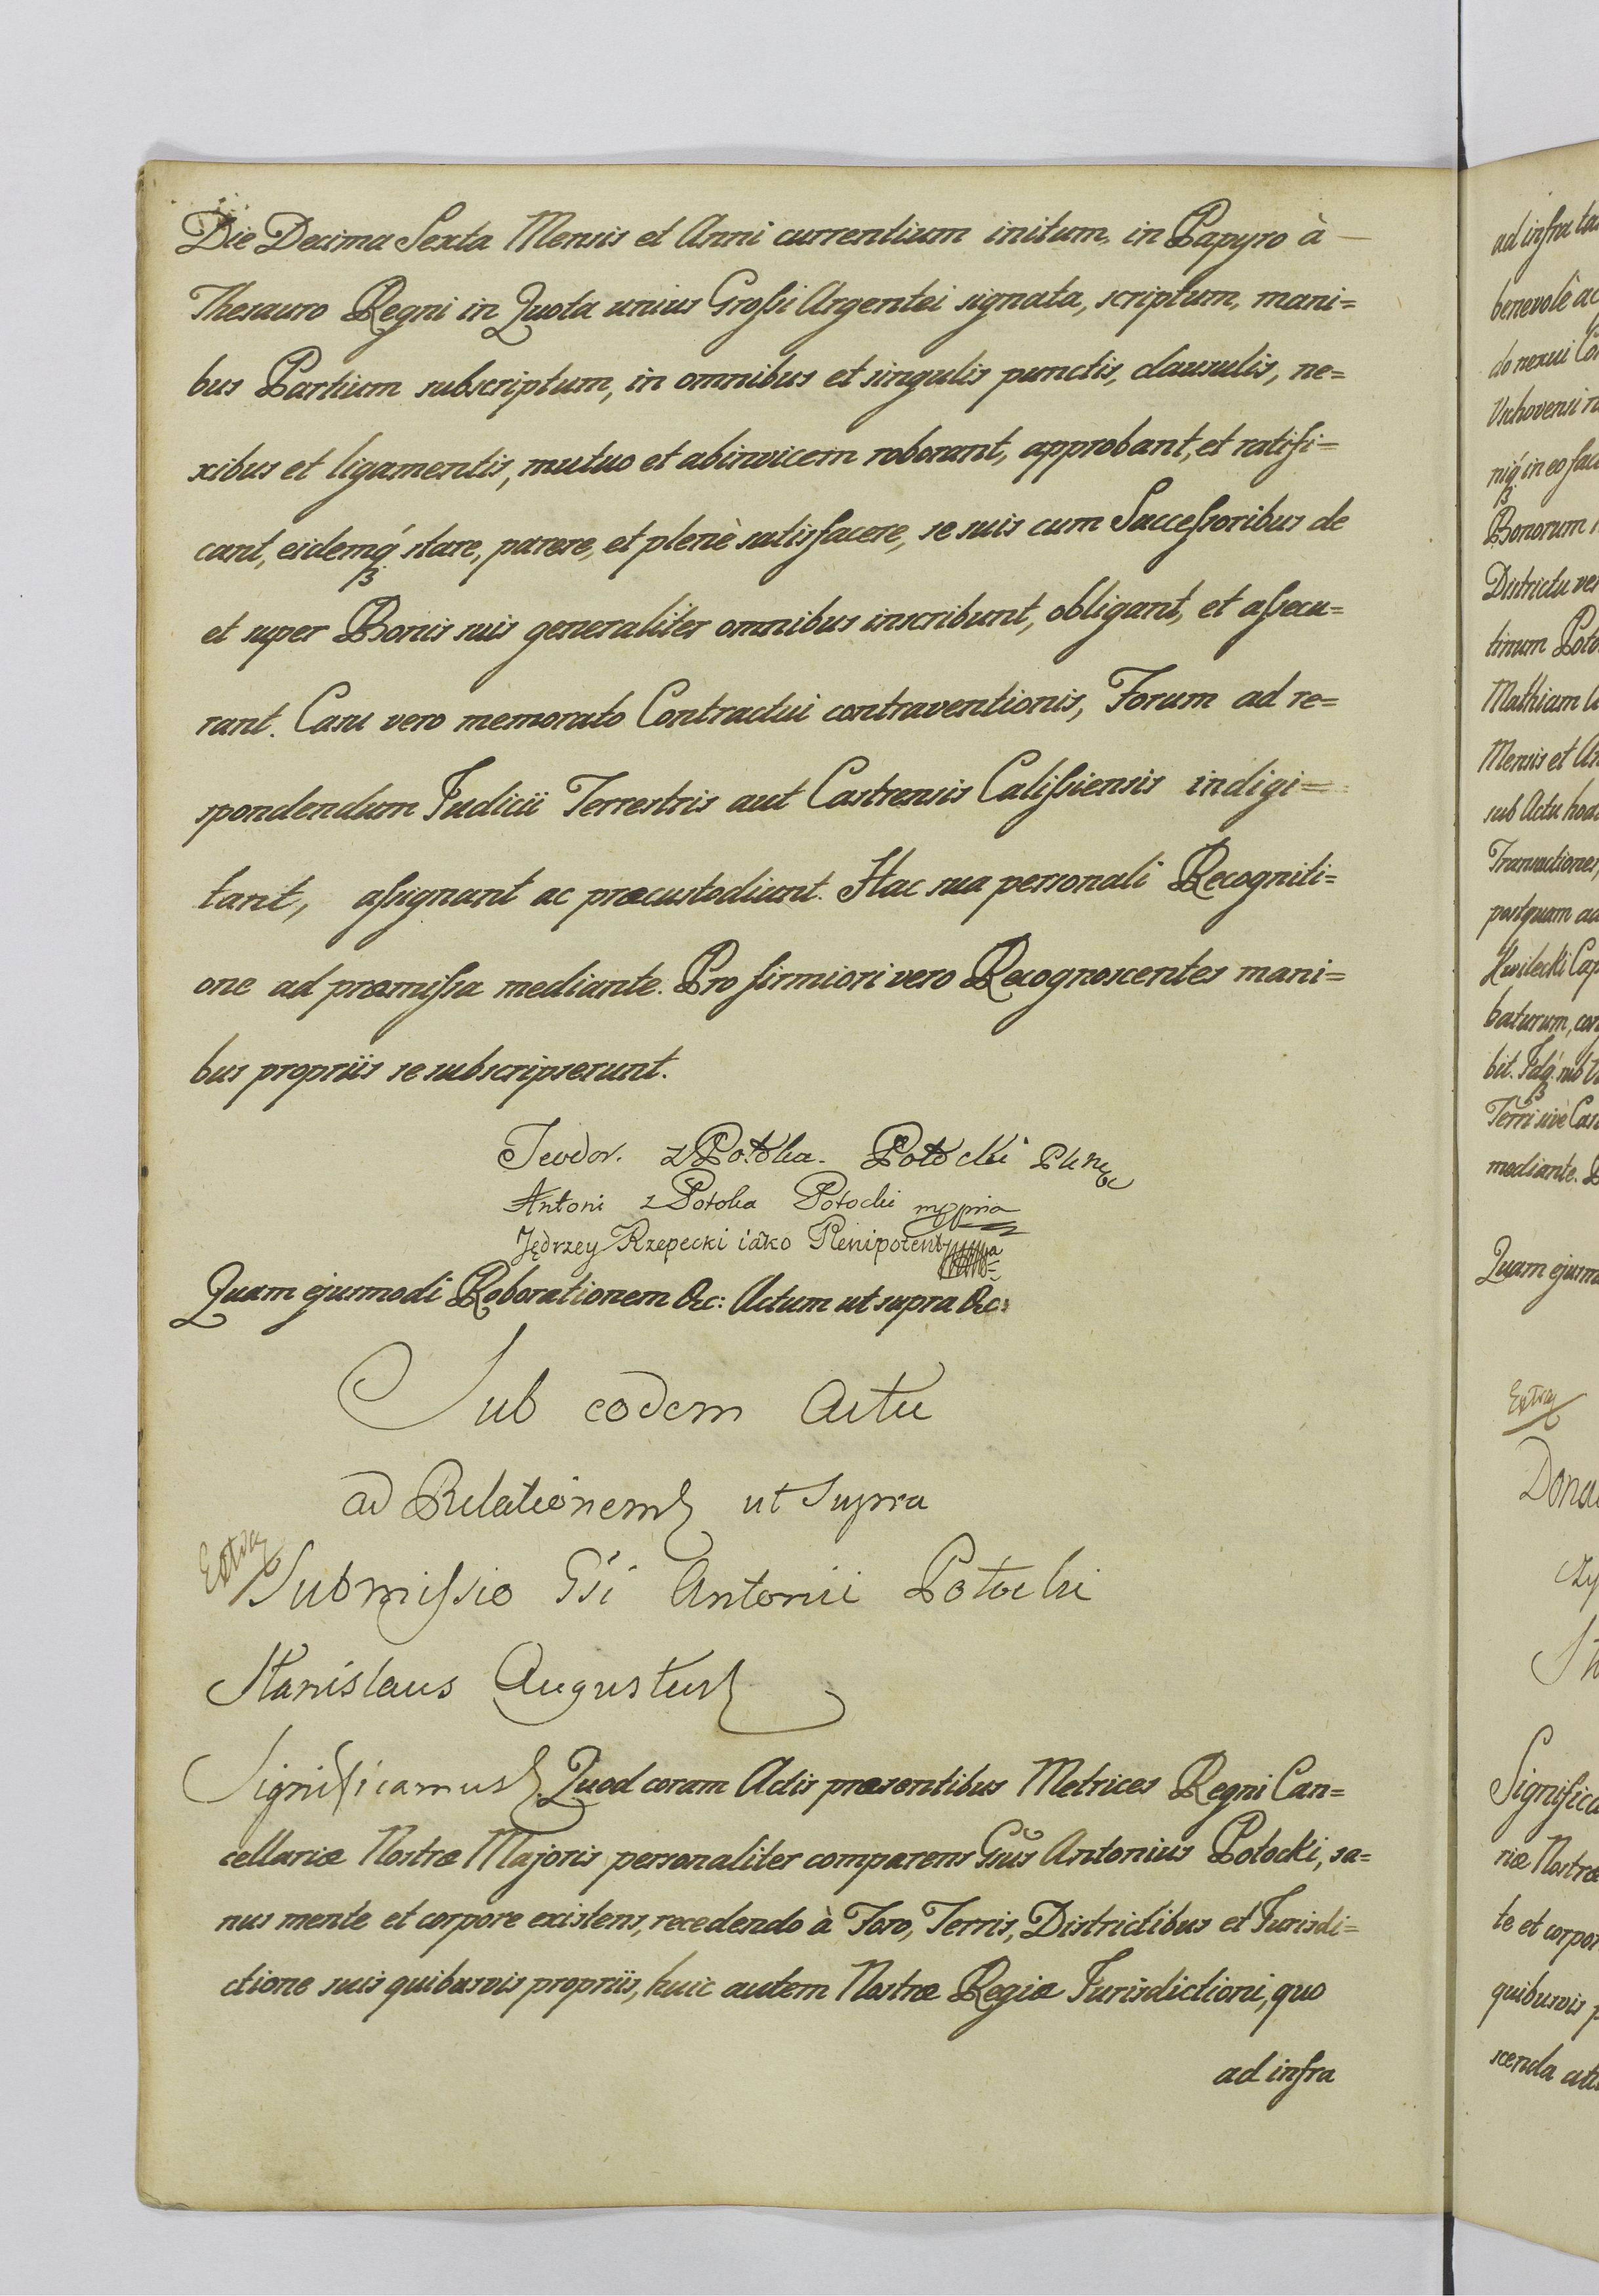 Die Decima Sexta Mensis et Anni currentium initum, in Papyro à
Thesauro Regni in Quota unius Grossi Argentei signata, scriptum, mani=
bus Partium subscriptum, in omnibus et singulis punctis, clausulis, ne=
xibus et ligamentis, mutuo et abinvicem roborant, approbant, et ratifi=
cant, eidemq́ stare, parere, et plenè satisfacere, se suis cum Successoribus de
et super Bonis suis generaliter omnibus inscribunt, obligant, et assecu=
rant. Casu vero memorato Contractui contraventionis, Forum ad re=
spondendum Judicii Terrestris aut Castrensis Calissiensis indigi=
tant, assignant ac præcustodiunt. Hac sua personali Recogniti=
one ad præmissa mediante. Pro firmiori vero Recognoscentes mani=
bus propriis se subscripserunt.
Teodor. z Potoka. Potocki
Antoni z Potoka Potocki mppria
Jędrzey Rzepecki iáko Plenipotent
Quam ejusmodi Roborationem &c: Actum ut supra &c:
Sub eodem Actu
ad Relationem ut Supra
Extra
Submissio Gsi Antonii Potocki
Stanislaus Augustus
Significamus. Quod coram Actis præsentibus Metrices Regni Can=
cellariæ Nostræ Majoris personaliter comparens Gsus Antonius Potocki, sa=
nus mente et corpore existens, recedendo à Foro, Terris, Districtibus et Jurisdi=
ctione suis quibusvis propriis, huic autem Nostræ Regiæ Jurisdictioni, quo
ad infra
ad infra
benevole
Bonorum
Mathiam
Mensis et
sub Actu
Transactiones,
postquam
baturum,
mediante.
Quam
Extra
te et
quibusvis